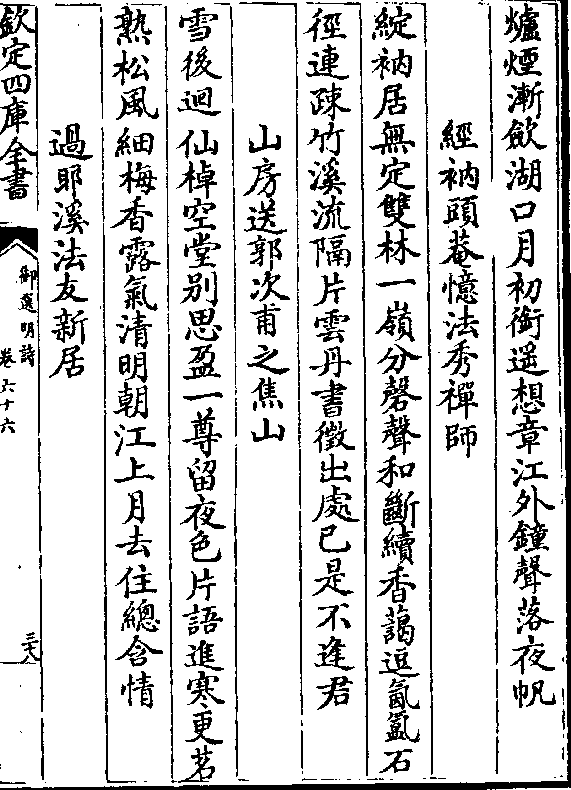 爐煙漸斂湖口月初銜遥想章江外鐘聲落夜帆
經衲頭菴憶法秀禪師
綻衲居無定雙林一嶺分磬聲和斷續香藹逗氤氲石
徑連疎竹溪流隔片雲丹書徴出處已是不逢君
山房送郭次甫之焦山
雪後迴仙棹空堂别思盈一尊留夜色片語進寒更茗
熟松風細梅香露氣清明朝江上月去住總含情
過耶溪法友新居
欽定四庫全書
御選明詩
卷六十六
三六